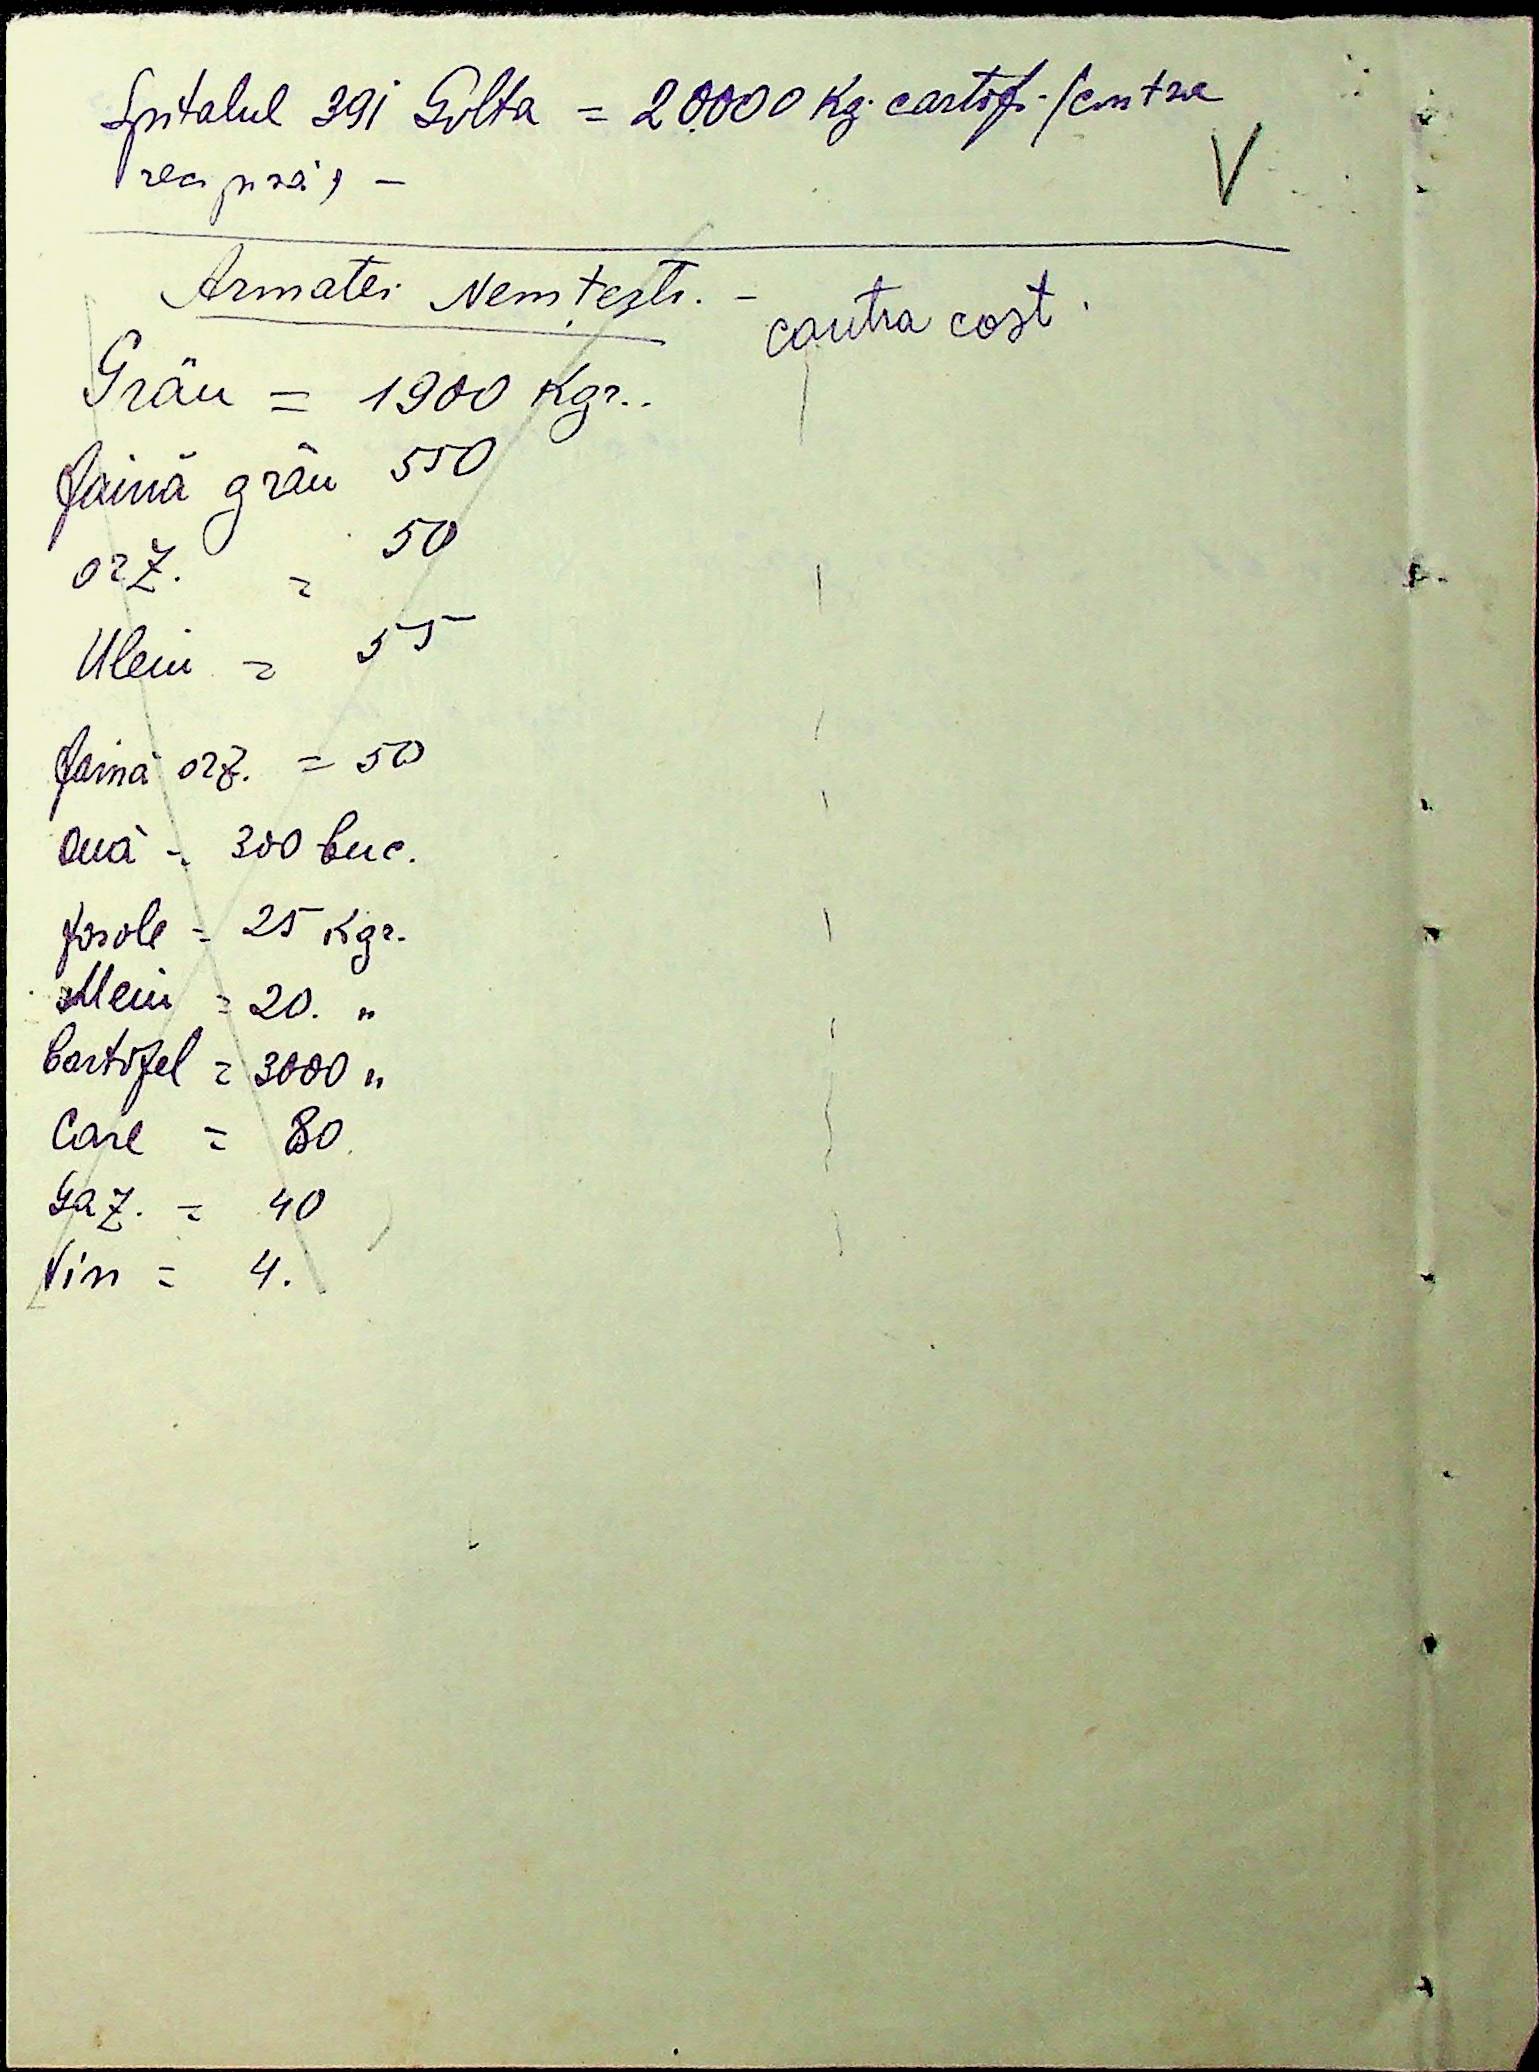 Spitalul 391 Golta = 20.000 Kg. cartofi /contra
V
Armatei Nemțești. - contra cost.
Grâu = 1900 Kgr..
făină grâu 550
orz. = 50
Ulei = 55
făină orz. = 50
Ouă = 300 buc.
fasole = 25 Kgr.
Mei = 20. "
Cartofel = 3000 "
Care = 80.
Gaz. = 40
Vin = 4.